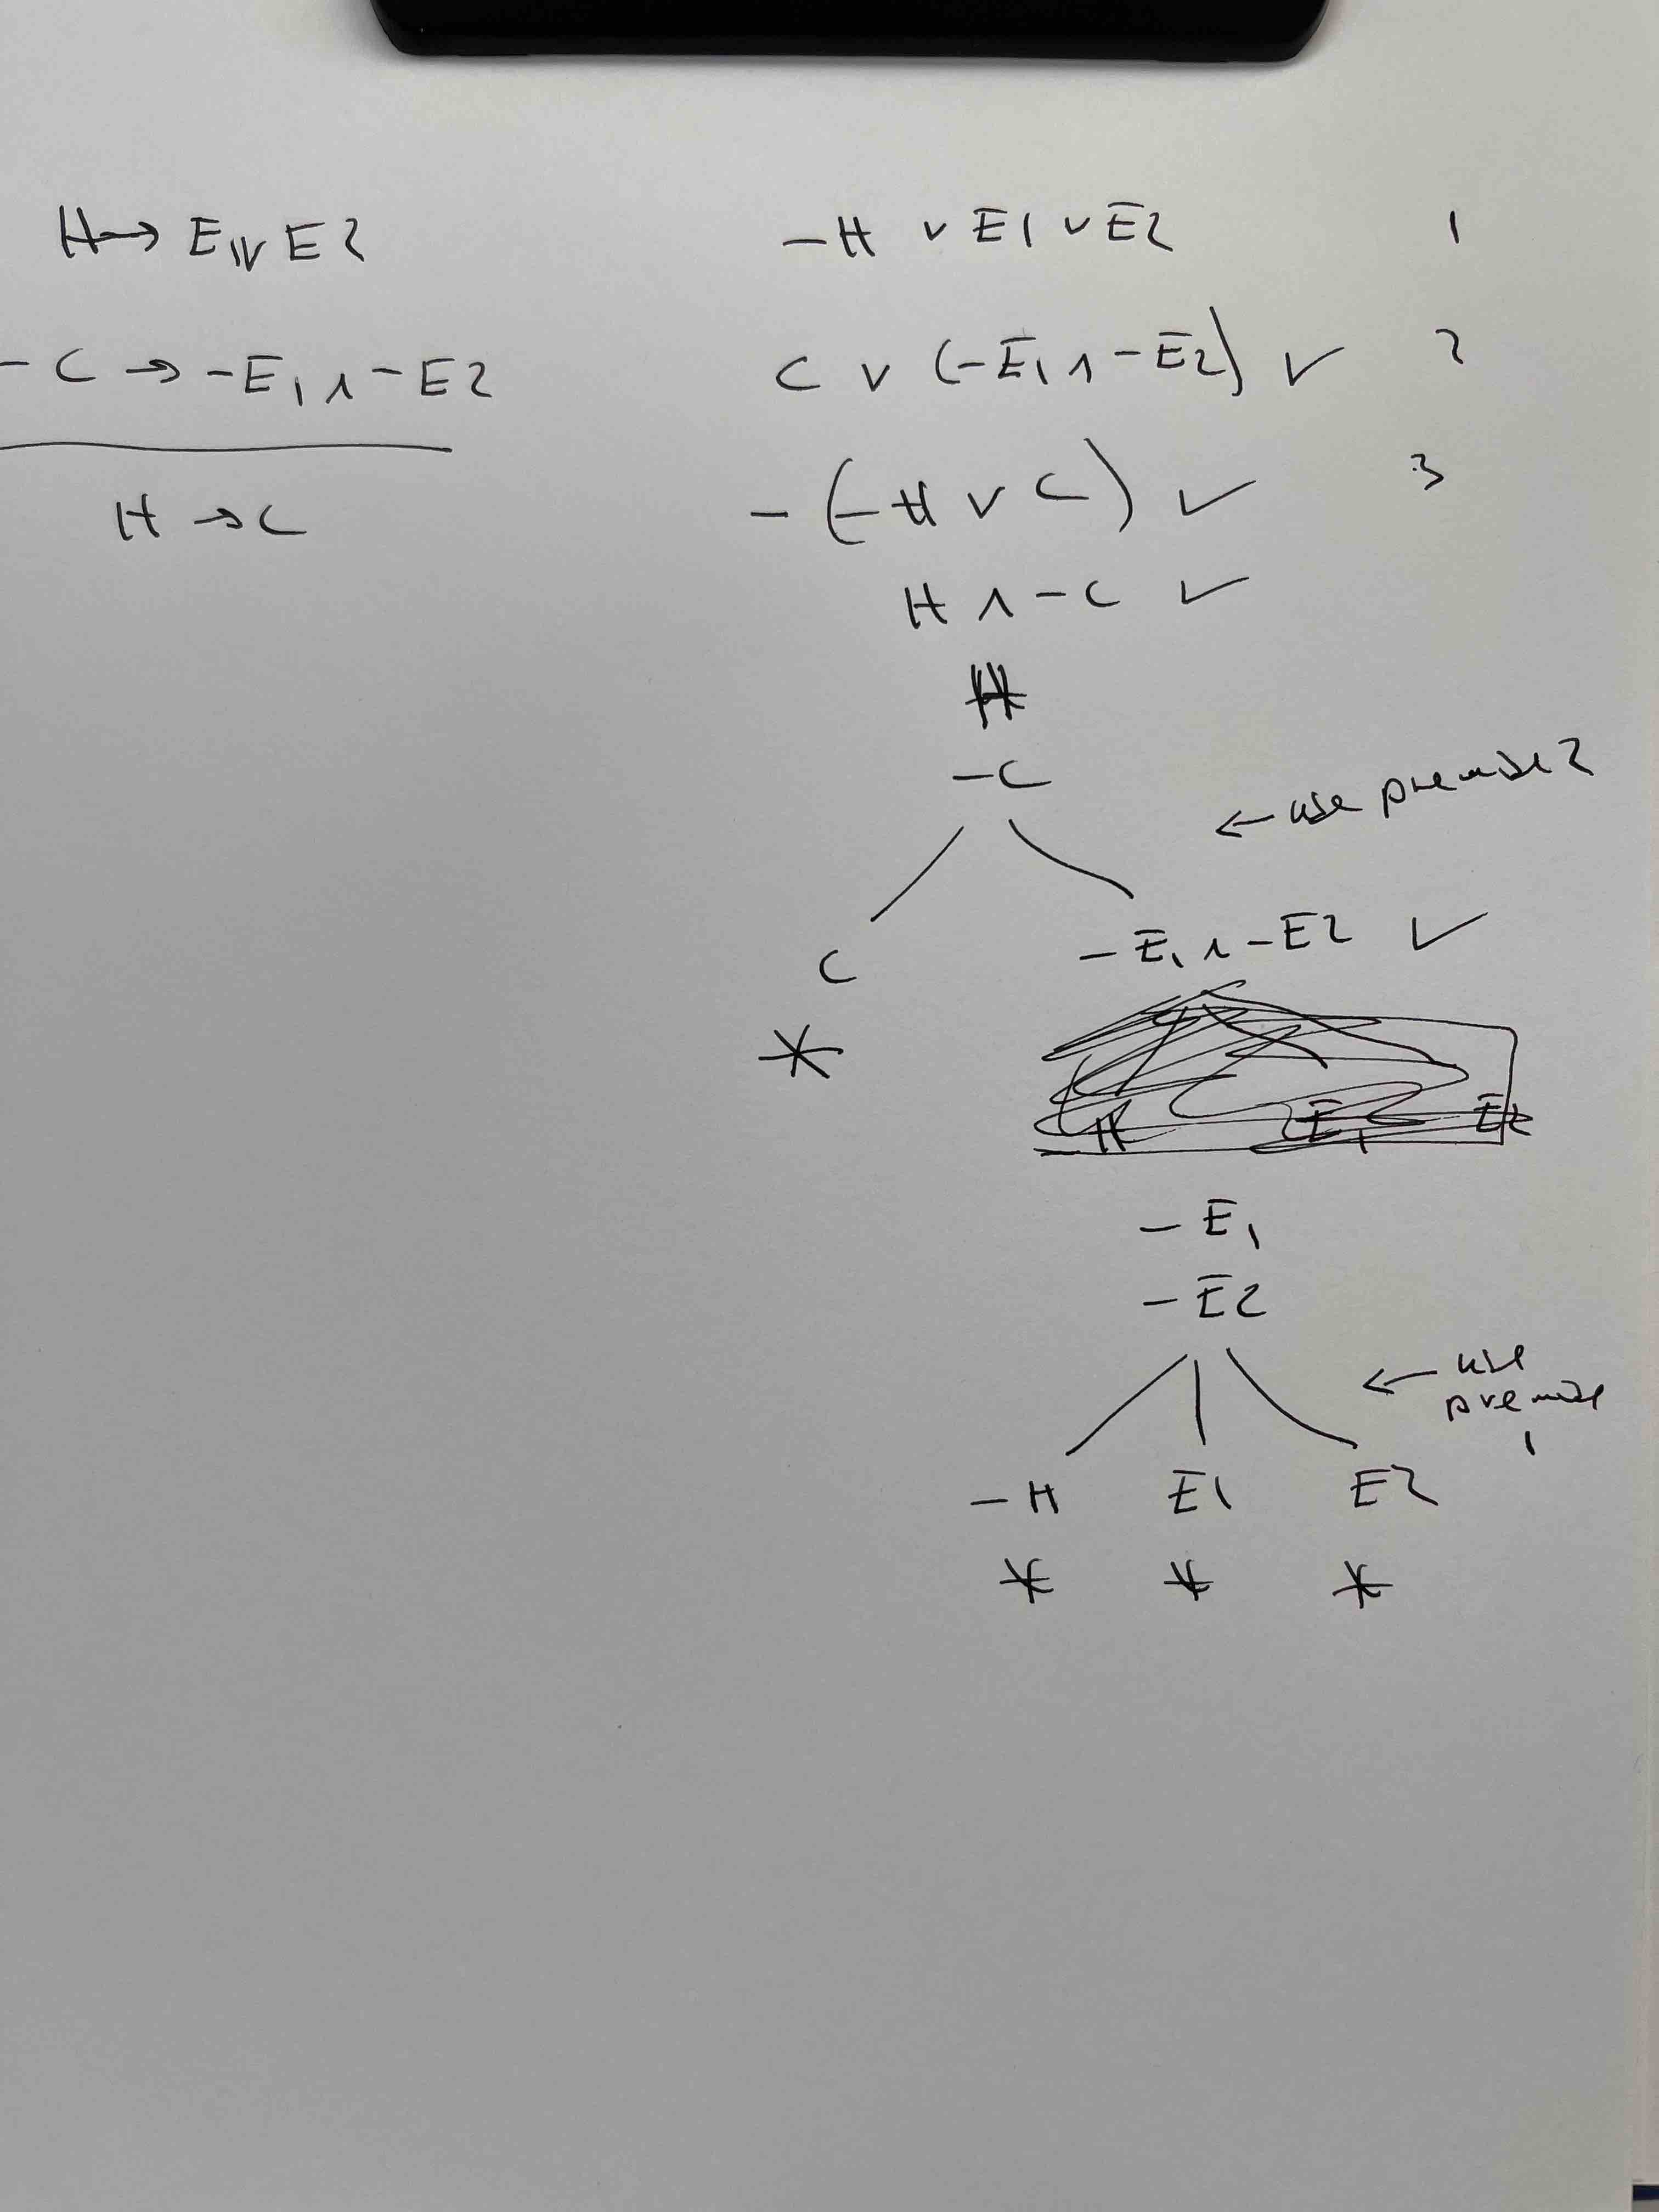 H → E1 ∨ E2
- C → - E1 ∧ - E2
H → C
- H ∨ E1 ∨ E2 1
C ∨ (- E1 ∧ - E2) ✓ 2
- (- H ∨ C) ✓ 3
H ∧ - C ✓
H
- C
← use premise 2
C - E1 ∧ - E2 ✓
*
- H E1 E2
- E1
- E2
← use
premise
1
- H E1 E2
* * *